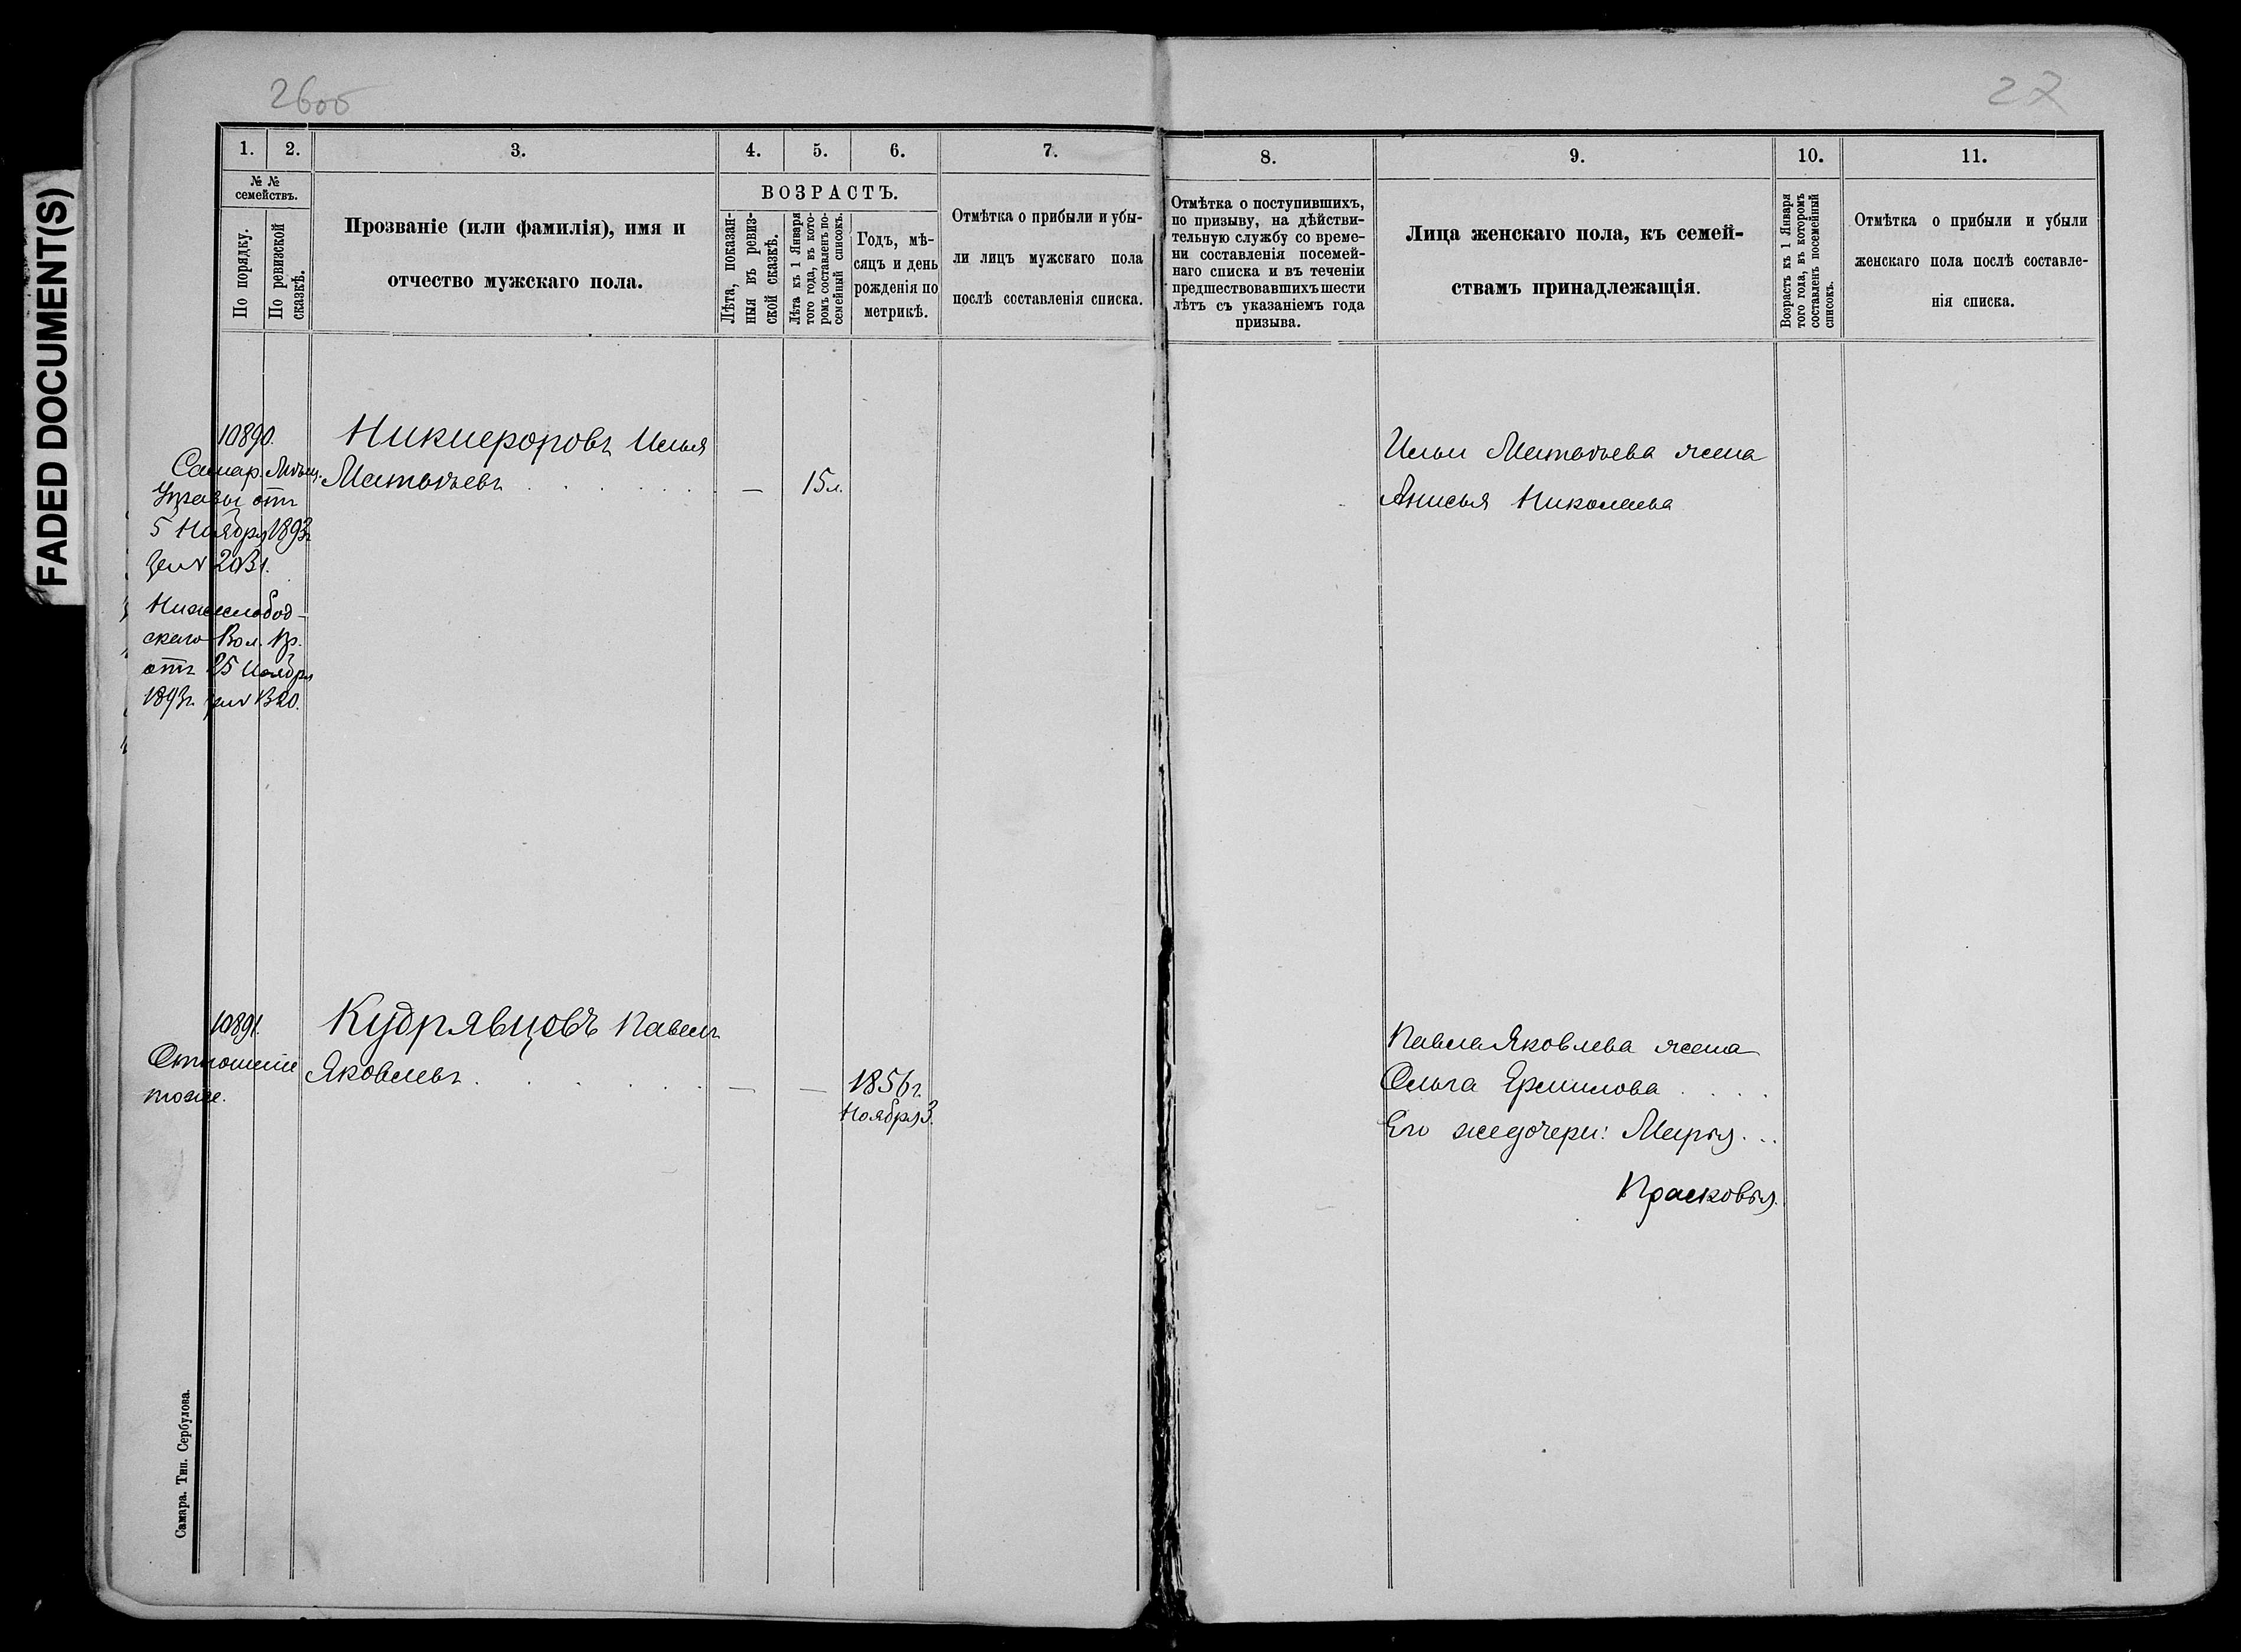 FADED DOCUMENT(S)
26об
27
1. 2. 3. 4. 5. 6. 7.
№ №
семействъ.
По порядку.
По ревизской
сказкѣ.
Прозваніе (или фамилія), имя и
отчество мужскаго пола.
ВОЗРАСТЪ.
Лѣта, показан-
ныя въ ревиз-
ской сказкѣ.
Лѣта къ 1 Января
того года, въ кото-
ромъ составленъ по-
семейный списокъ.
Годъ, мѣ-
сяцъ и день
рожденія по
метрикѣ.
Отмѣтка о прибыли и убы-
ли лицъ мужскаго пола
послѣ составленія списка.
10890.
Самар. Мѣщ.
Управы отъ
5 Ноября 1893г
за №
Никифоровъ Илья
Матвѣевъ . . . . . . — 15 л.
Нижнеслобод-
скаго Вол. Пр.
отъ 25 Ноября
1893г. за № 1320.
10891.
Отношеніе
тоже.
Кудрявцовъ Павелъ
Яковлевъ . . . . . . — — 1856 г.
Ноября 3.
Самара. Тип. Сербулова.
8. 9. 10. 11.
Отмѣтка о поступившихъ,
по призыву, на дѣйстви-
тельную службу со време-
ни составленія посемей-
наго списка и въ теченіи
предшествовавшихъ шести
лѣтъ съ указаніемъ года
призыва.
Лица женскаго пола, къ семей-
ствамъ принадлежащія.
Возрастъ къ 1 Января
того года, въ которомъ
составленъ посемейный
списокъ.
Отмѣтка о прибыли и убыли
женскаго пола послѣ составле-
нія списка.
Ильи Матвѣева жена
Анисья Николаева
Павла Яковлева жена
Ольга Ермилова . . . .
Его же дочери: Марія . . .
Прасковія.